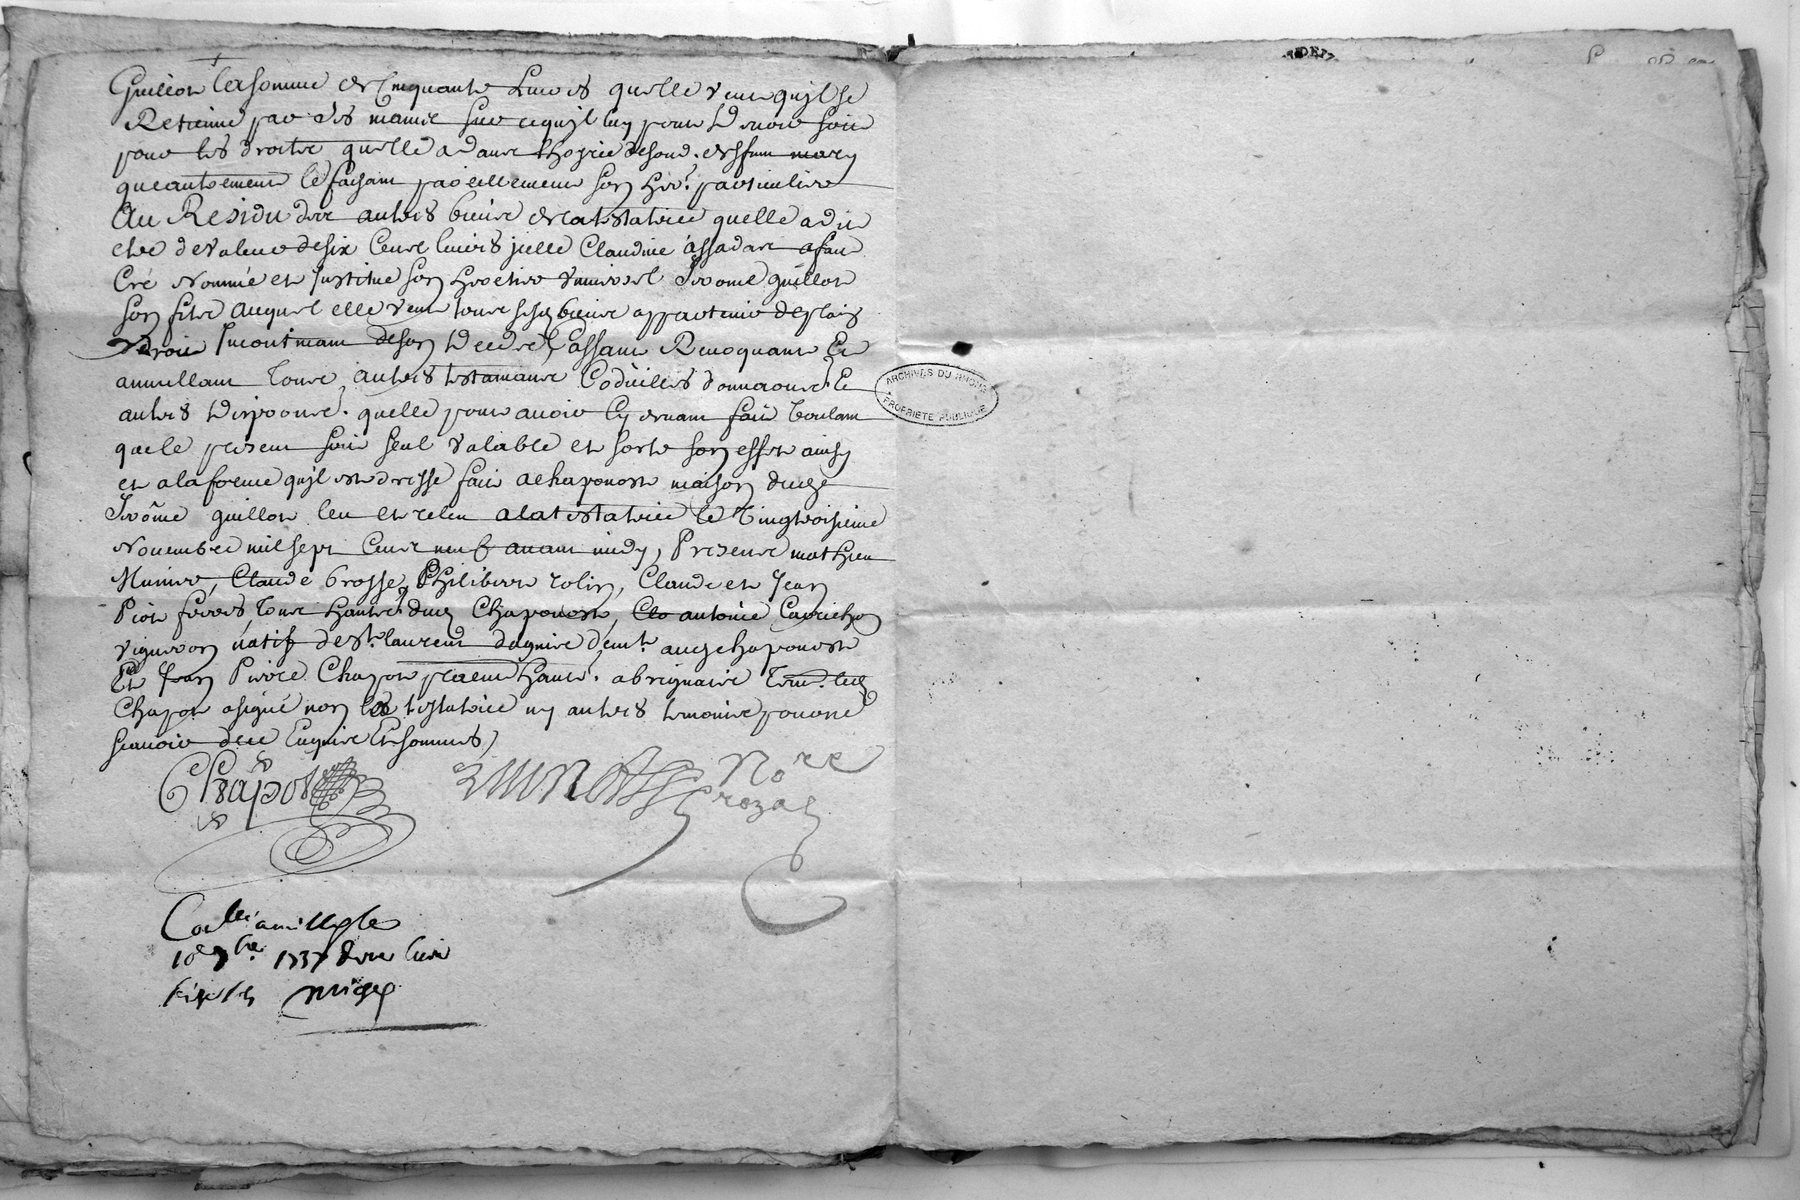 Guillot la somme de Cinquante Livres quelle veut quil se
Retienne par ses mains sur ce quil luy pour devoir soit
pour les droits quelle a dans lhoirie de son d. deffunt mary
que autrement le faisant pareillement son her. particuliere
Au Residu des autres biens de la testatrice quelle a dit
etre de valeur de six Cent livres jcelle Claudine assada a fait
Cré Nommé et Institue son heretier Universel Jerome guillot
son fils auquel elle veut tous ses biens appartenir de plain
droit Incontinant de son deced Cassant Revoquant Et
annullant Tous autres testamans Codicilles donnaons Et
autres dispoons. quelle pour avoir Cy devant fait Voulant
que le present soit seul valable et sorte son effet ainsy
et a la forme quil est dresse fait a chaponost maison dudit
Jerôme guillot leu et releu a la testatrice le Vingtroisieme
Novembre mil sept Cent neuf avant midy, Present mathieu
Munier, Claude brosse, Philibert rolin, Claude et Jean
Piot freres, tous habts dud Chaponost, antoine
vigneron natif de St laurent dagnire demt. aud chaponost
Et Jean Pierre Chapot habit. a brignaire led
Chapot a signé non la testatrice ny autres temoins pour ne
scavoir de ce Enquis Et sommes
Chapot No re
rozas
1737
ARCHIVES DU RHONE
PROPRIETE PUBLIQUE